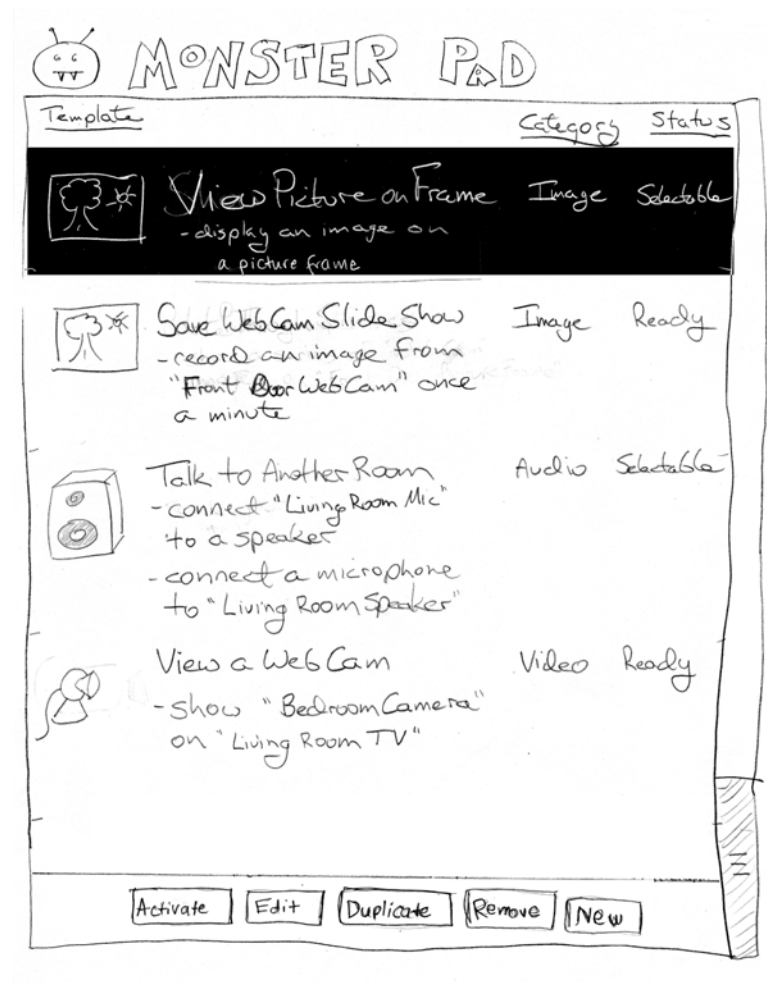 MONSTER PAD
Template Category Status
View Picture on Frame Image Selectable
- display an image on
a picture frame
Save WebCam Slide Show Image Ready
- record an image from
"Front Door WebCam" once
a minute
Talk to Another Room Audio Selectable
- connect "Living Room Mic"
to a speaker
- connect a microphone
to "Living Room Speaker"
View a WebCam Video Ready
- show "Bedroom Camera"
on "Living Room TV"
Activate Edit Duplicate Remove New